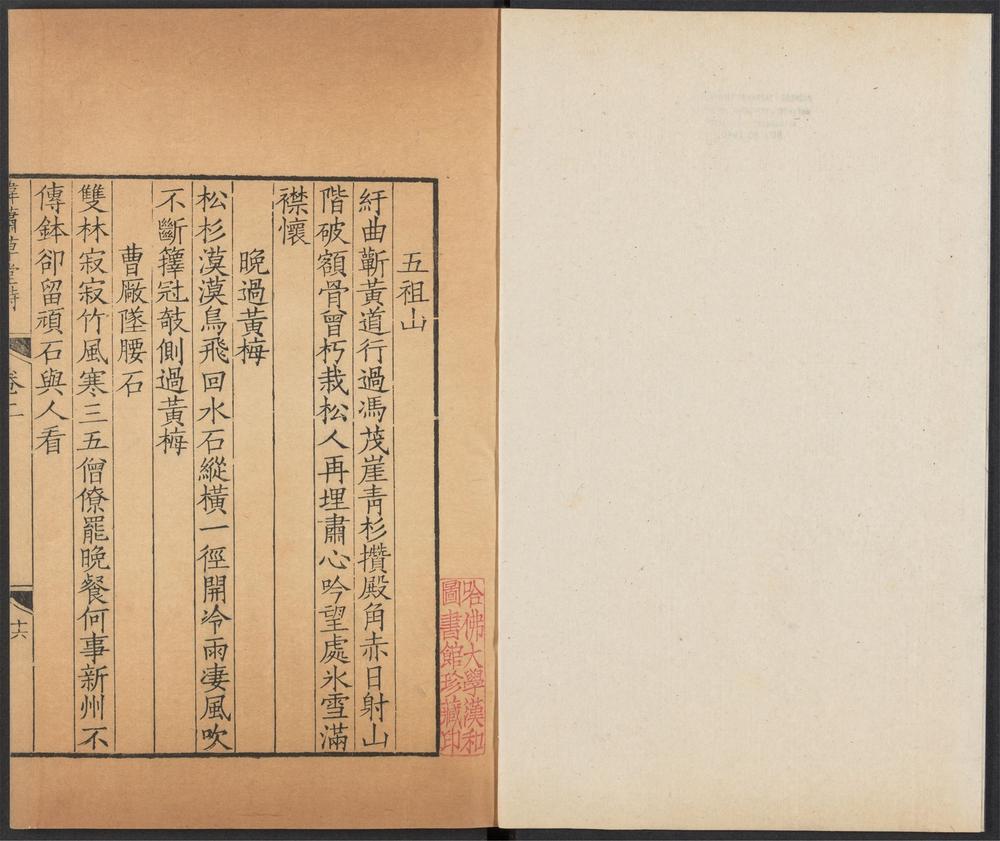 五祖山
紆曲蘄黃道行過馮茂崖靑杉攢殿角赤日射山
階破額骨曾朽栽松人再埋肅心吟望處氷雪滿
襟懷
晚過黃梅
松杉漠漠鳥飛回水石縱橫一徑開冷雨淒風吹
不斷籜冠攲側過黃梅
曹厰墜腰石
雙林寂寂竹風寒三五僧僚罷晚餐何事新州不
傳鉢卻留頑石與人看
卷二
十六
哈佛大學漢和
圖書館珍藏印